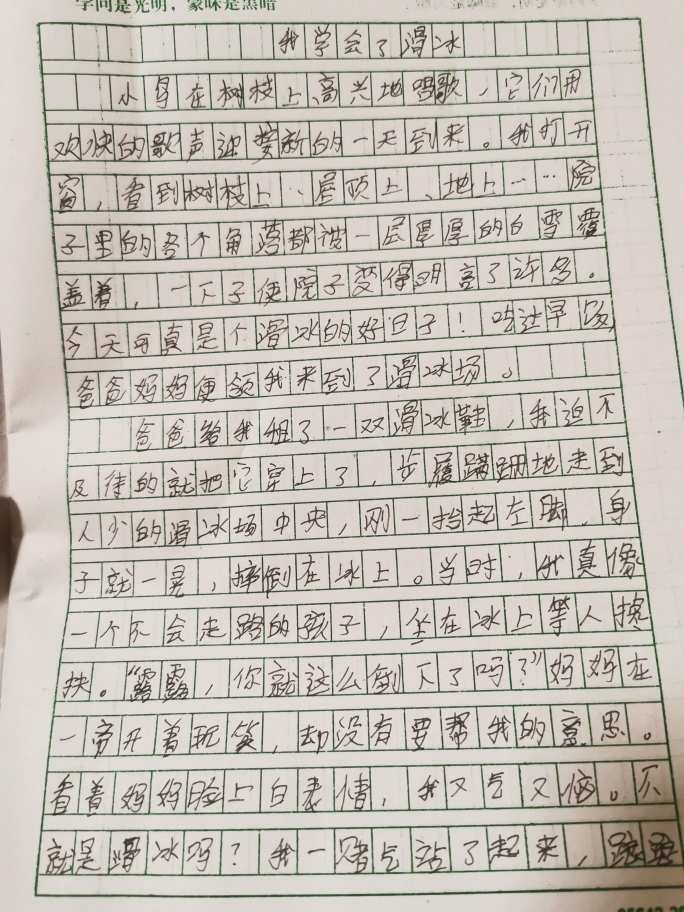 学问是光明，蒙昧是黑暗
我学会了滑冰
小鸟在树枝上高兴地唱歌，它们用
欢快的歌声迎接新的一天到来。我打开
窗，看到树枝上、屋顶上、地上……院
子里的各个角落都被一层厚厚的白雪覆
盖着，一下子使院子变得明亮了许多。
今天可真是个滑冰的好日子！吃过早饭，
爸爸妈妈便领我来到了滑冰场。
爸爸给我租了一双滑冰鞋，我迫不
及待的就把它穿上了，步履蹒跚地走到
人少的滑冰场中央，刚一抬起左脚，身
子就一晃，摔倒在冰上。当时，我真像
一个不会走路的孩子，坐在冰上等人搀
扶。“露露，你就这么倒下了吗？”妈妈在
一旁开着玩笑，却没有要帮我的意思。
看着妈妈脸上白表情，我又气又恼。不
就是滑冰吗？我一赌气站了起来，